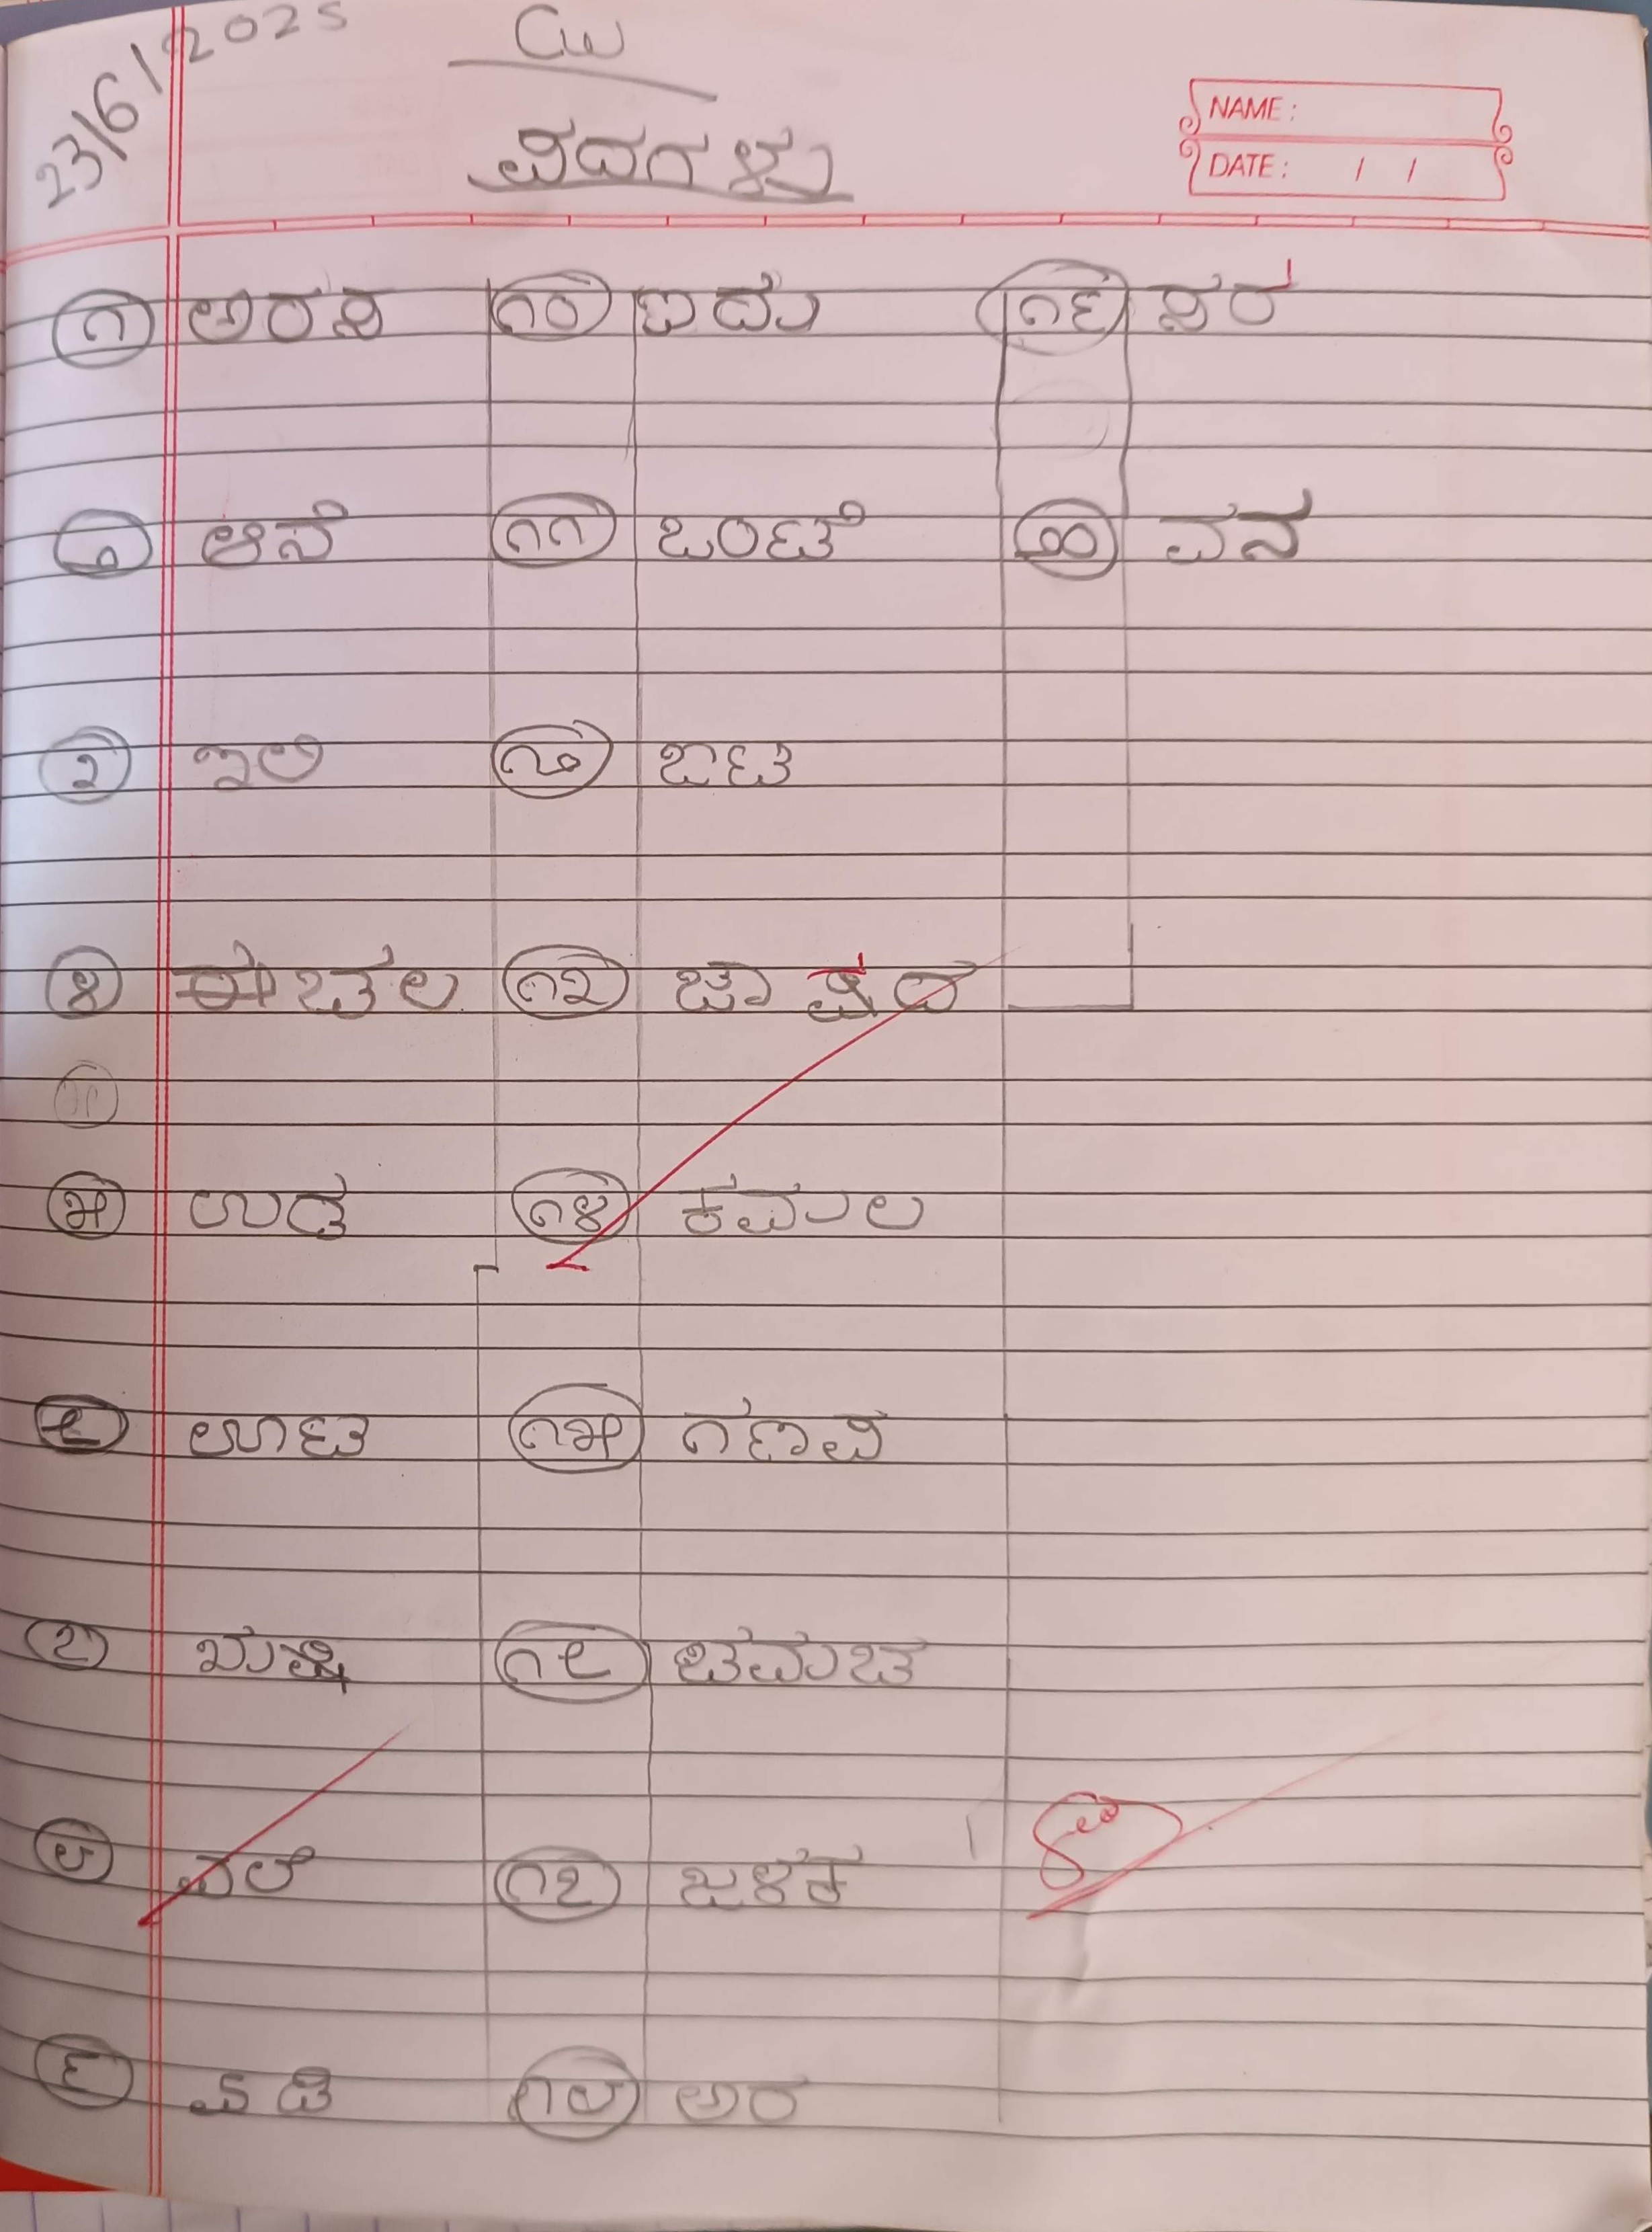 23/6/2025
CW
ಪದಗಳು
NAME:
DATE: / /
೧ ಅರಸ ೧೦ ಐದು ೧೯ ಸರ
೨ ಆನೆ ೧೧ ಒಂಟೆ ೨೦ ವನ
೩ ಇಲಿ ೧೨ ಓಟ
೪ ಈಚಲ ೧೩ ಔಷದ
೫
೫ ಉಡ ೧೪ ಕಮಲ
೬ ಊಟ ೧೫ ಗಣಪ
೭ ಋಷಿ ೧೬ ಚಮಚ
೮ ಎಲೆ ೧೭ ಜಳಕ
೯ ಏಡಿ ೧೮ ಅರ